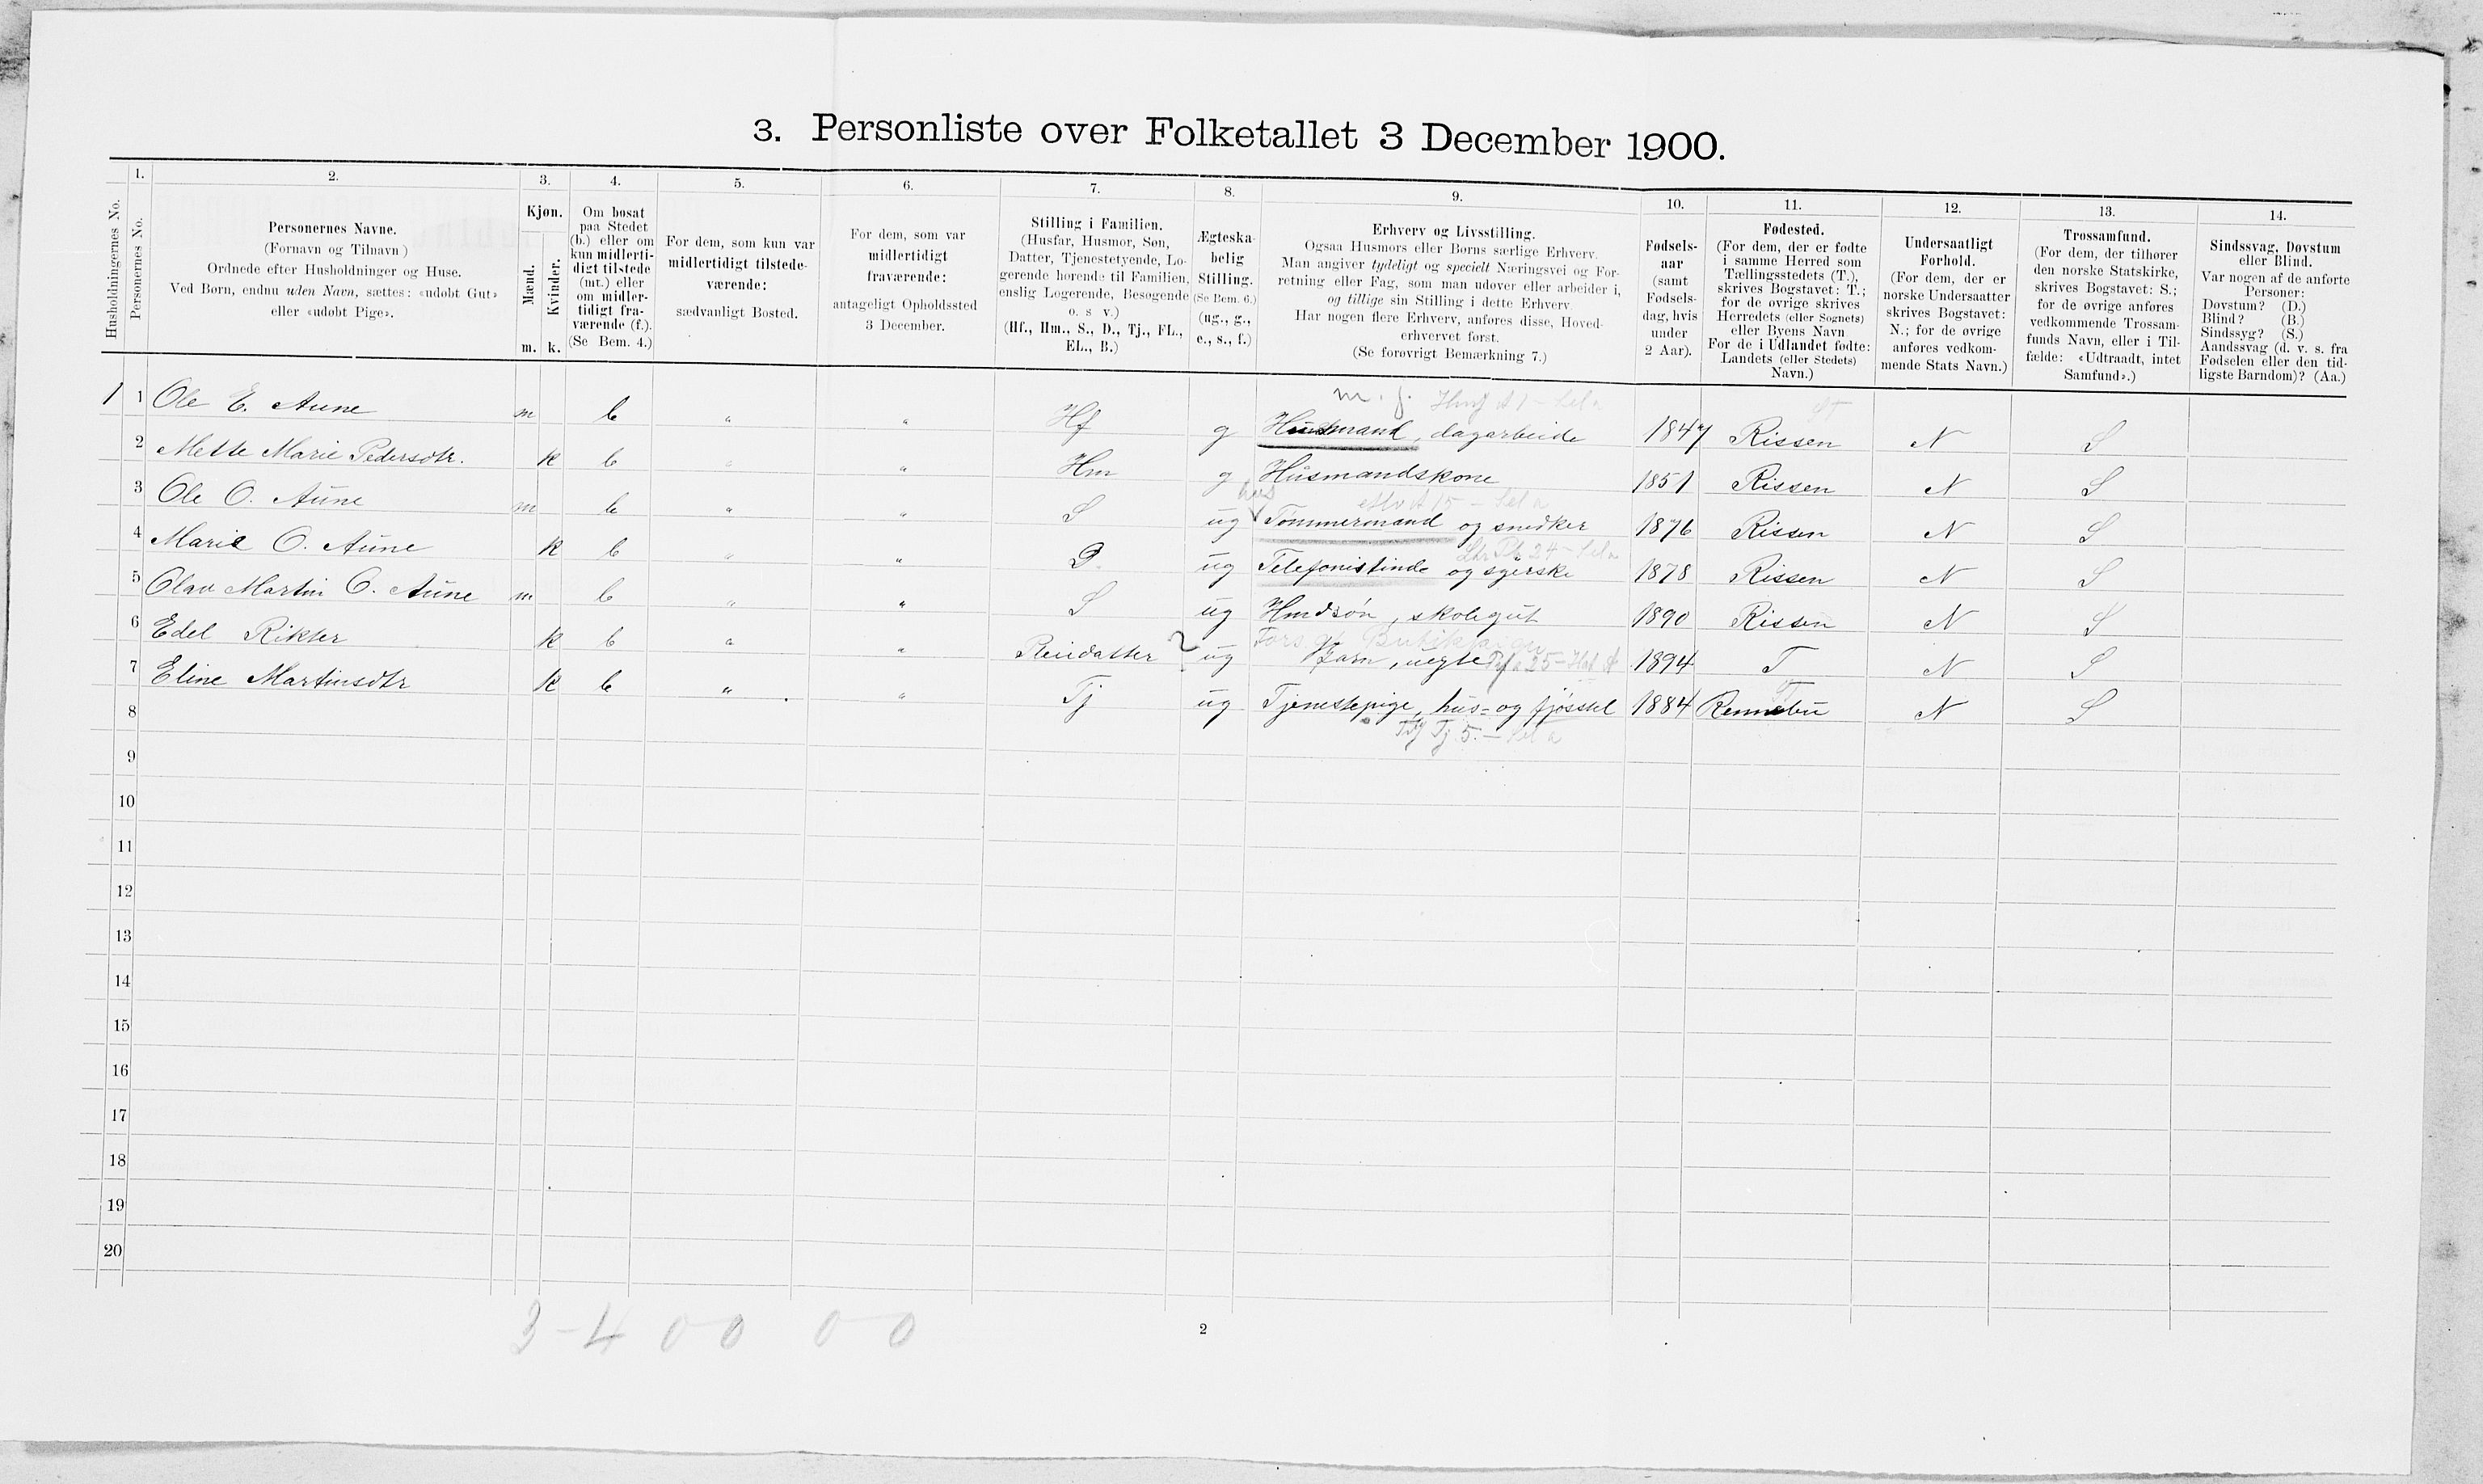 3. Personliste over Folketallet 3 December 1900.
1. 2. 3. 4. 5. 6. 7. 8. 9. 10. 11. 12. 13. 14.
Husholdningernes No.
Personernes No.
Personernes Navne.
(Fornavn og Tilnavn)
Ordnede efter Husholdninger og Huse.
Ved Børn, endnu uden Navn, sættes: «udøbt Gut»
eller «udøbt Pige».
Kjøn.
Mænd.
Kvinder.
m. k.
Om bosat
paa Stedet
(b.) eller om
kun midlerti-
digt tilstede
(mt.) eller
om midler-
tidigt fra-
værende (f.).
(Se Bem. 4.)
For dem, som kun var
midlertidigt tilstede-
værende:
sædvanligt Bosted.
For dem, som var
midlertidigt
fraværende:
antageligt Opholdssted
3 December.
Stilling i Familien.
(Husfar, Husmor, Søn,
Datter, Tjenestetyende, Lo-
gerende hørende til Familien,
enslig Logerende, Besøgende
o. s v.)
(Hf., Hm., S., D., Tj., FL.,
EL., B.)
Ægteska-
belig
Stilling.
(Se Bem. 6.)
(ug., g.,
e., s., f.)
Erhverv og Livsstilling.
Ogsaa Husmors eller Børns særlige Erhverv.
Man angiver tydeligt og specielt Næringsvei og For-
retning eller Fag, som man udøver eller arbeider i,
og tillige sin Stilling i dette Erhverv.
Har nogen flere Erhverv, anføres disse, Hoved-
erhvervet først.
(Se forøvrigt Bemærkning 7.)
Fødsels-
aar
(samt
Fødsels-
dag, hvis
under
2 Aar).
Fødested.
(For dem, der er fødte
i samme Herred som
Tællingsstedets (T.),
skrives Bogstavet: T.;
for de øvrige skrives
Herredets (eller Sognets)
eller Byens Navn
For de i Udlandet fødte:
Landets (eller Stedets)
Navn.)
Undersaatligt
Forhold.
(For dem, der er
norske Undersaatter
skrives Bogstavet:
N.; for de øvrige
anføres vedkom-
mende Stats Navn.)
Trossamfund.
(For dem, der tilhører
den norske Statskirke,
skrives Bogstavet: S.;
for de øvrige anføres
vedkommende Trossam-
funds Navn, eller i Til-
fælde: «Udtraadt, intet
Samfund».)
Sindssvag, Døvstum
eller Blind.
Var nogen af de anførte
Personer:
Døvstum? (D.)
Blind? (B.)
Sindssyg? (S.)
Aandssvag (d. v. s. fra
Fødselen eller den tid-
ligste Barndom)? (Aa.)
m. f.
1 1 Ole E. Aune m b " " Hf g Husmand, dagarbeide 1847 Rissen N S
2 Mette Marie Pedersdtr. k b " " Hm g Husmandskone 1851 Rissen N S
hus
3 Ole O. Aune m b " " S ug Tømmermand og snedker 1876 Rissen N S
4 Marie O. Aune k b " " D. ug Telefonistinde og syerske 1878 Rissen N S
5 Olav Martin O. Aune m b " " S ug Hmdsøn, skolegut 1890 Rissen N S
6 Edel Rikter k b " " Pleiedatter ? ug Barn, uegte 1894 T N S
7 Eline Martinsdtr k b " " Tj ug Tjenestepige, hus- og fjøsstel 1884 Rennebu N S
8
9
10
11
12
13
14
15
16
17
18
19
20
3-4 0-0 0-0
2